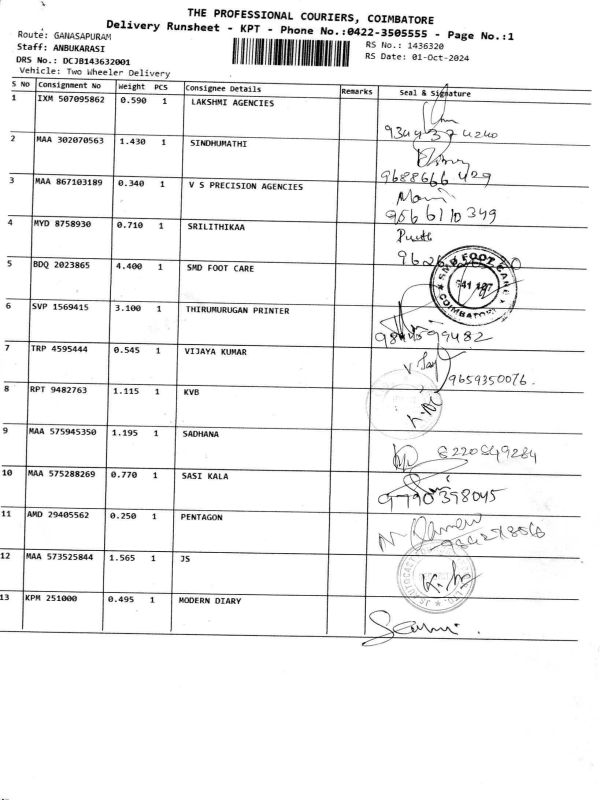 THE PROFESSIONAL COURIERS, COIMBATORE
Delivery Runsheet - KPT - Phone No.:0422-3505555 - Page No.:1
Route: GANASAPURAM
RS No.: 1436320
Staff: ANBUKARASI
RS Date: 01-Oct-2024
DRS No.: DCJB143632001
Vehicle: Two Wheeler Delivery
S No Consignment No Weight PCS Consignee Details Remarks Seal & Signature
1 IXM 507095862 0.590 1 LAKSHMI AGENCIES
2 MAA 302070563 1.430 1 SINDHUMATHI
9688666 429
3 MAA 867103189 0.340 1 V S PRECISION AGENCIES
9566110349
4 MYD 8758930 0.710 1 SRILITHIKAA
5 BDQ 2023865 4.400 1 SMD FOOT CARE
SMD FOOT CARE
COIMBATORE
6 SVP 1569415 3.100 1 THIRUMURUGAN PRINTER
7 TRP 4595444 0.545 1 VIJAYA KUMAR
9659350076.
8 RPT 9482763 1.115 1 KVB
9 MAA 575945350 1.195 1 SADHANA
8220849284
10 MAA 575288269 0.770 1 SASI KALA
9790398045
11 AMD 29405562 0.250 1 PENTAGON
12 MAA 573525844 1.565 1 JS
13 KPM 251000 0.495 1 MODERN DIARY